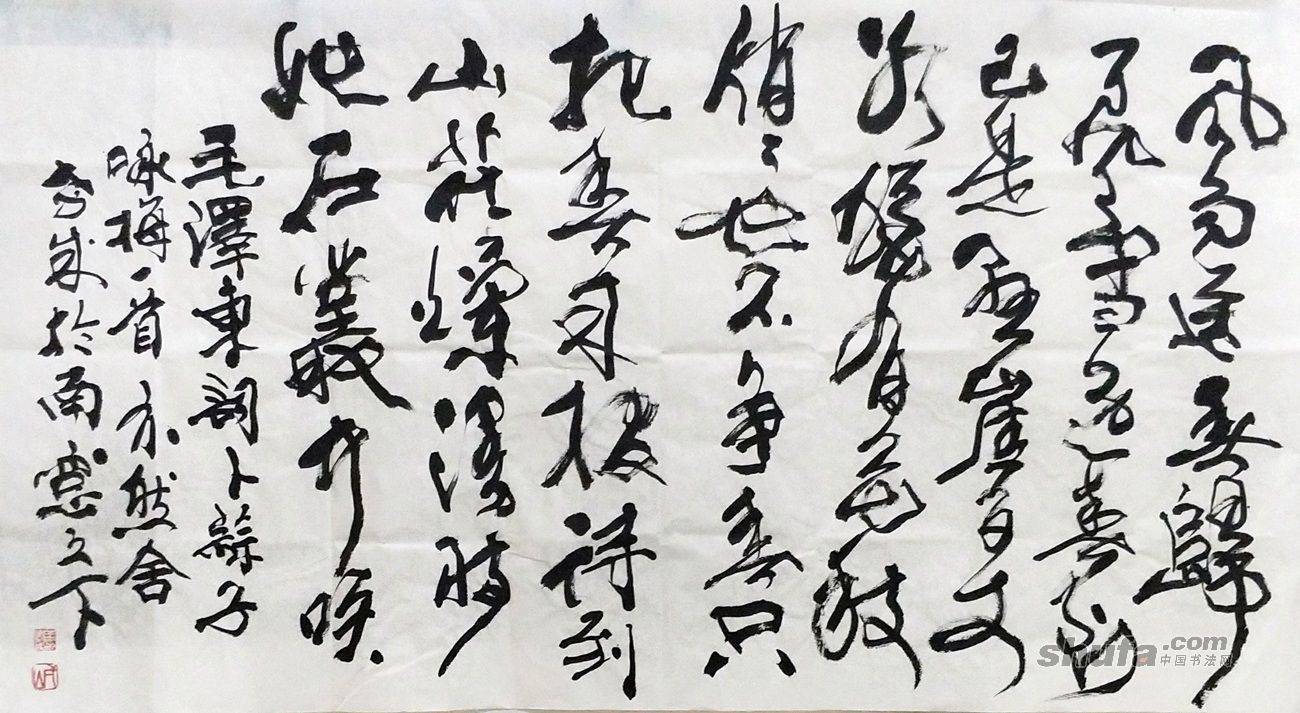 風雨送春歸
飛雪迎春到
已是懸崖百丈
冰猶有花枝
俏〻也不争春只
把春来報待到
山花爛漫時
她在叢中笑
毛澤東詞卜蒜子
咏梅一首亦然舍
成於南窓之下
shufa.com
中国书法网